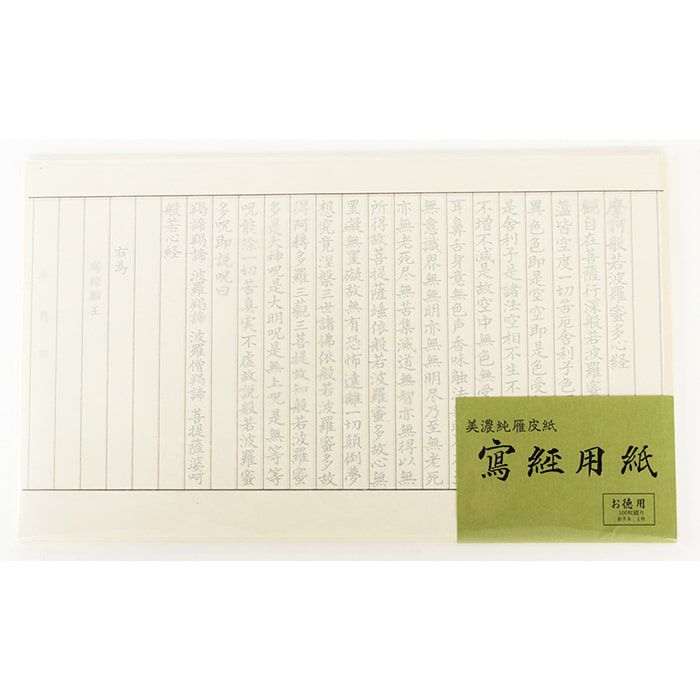 摩訶般若波羅蜜多心経
觀自在菩薩行深般若波羅蜜
蘊皆空度一切苦厄舎利子色
異色色即是空空即是色受
是舎利子是諸法空相不生不
不増不減是故空中無色無受
耳鼻舌身意無色声香味触法
無意識界無無明亦無無明尽乃至無老死
亦無老死尽無苦集滅道無智亦無得以無
所得故菩提薩埵依般若波羅蜜多故心無
罣礙無罣礙故無有恐怖遠離一切顛倒夢
想究竟涅槃三世諸佛依般若波羅蜜多故
得阿耨多羅三藐三菩提故知般若波羅蜜
多是大神呪是大明呪是無上呪是無等等
呪能除一切苦真実不虚故説般若波羅蜜
多呪即説呪曰
羯諦羯諦 波羅羯諦 波羅僧羯諦 菩提薩婆呵
般若心経
右為
寫經願主
年 月 日
美濃純雁皮紙
寫経用紙
お徳用
100枚綴り
お手本 1枚